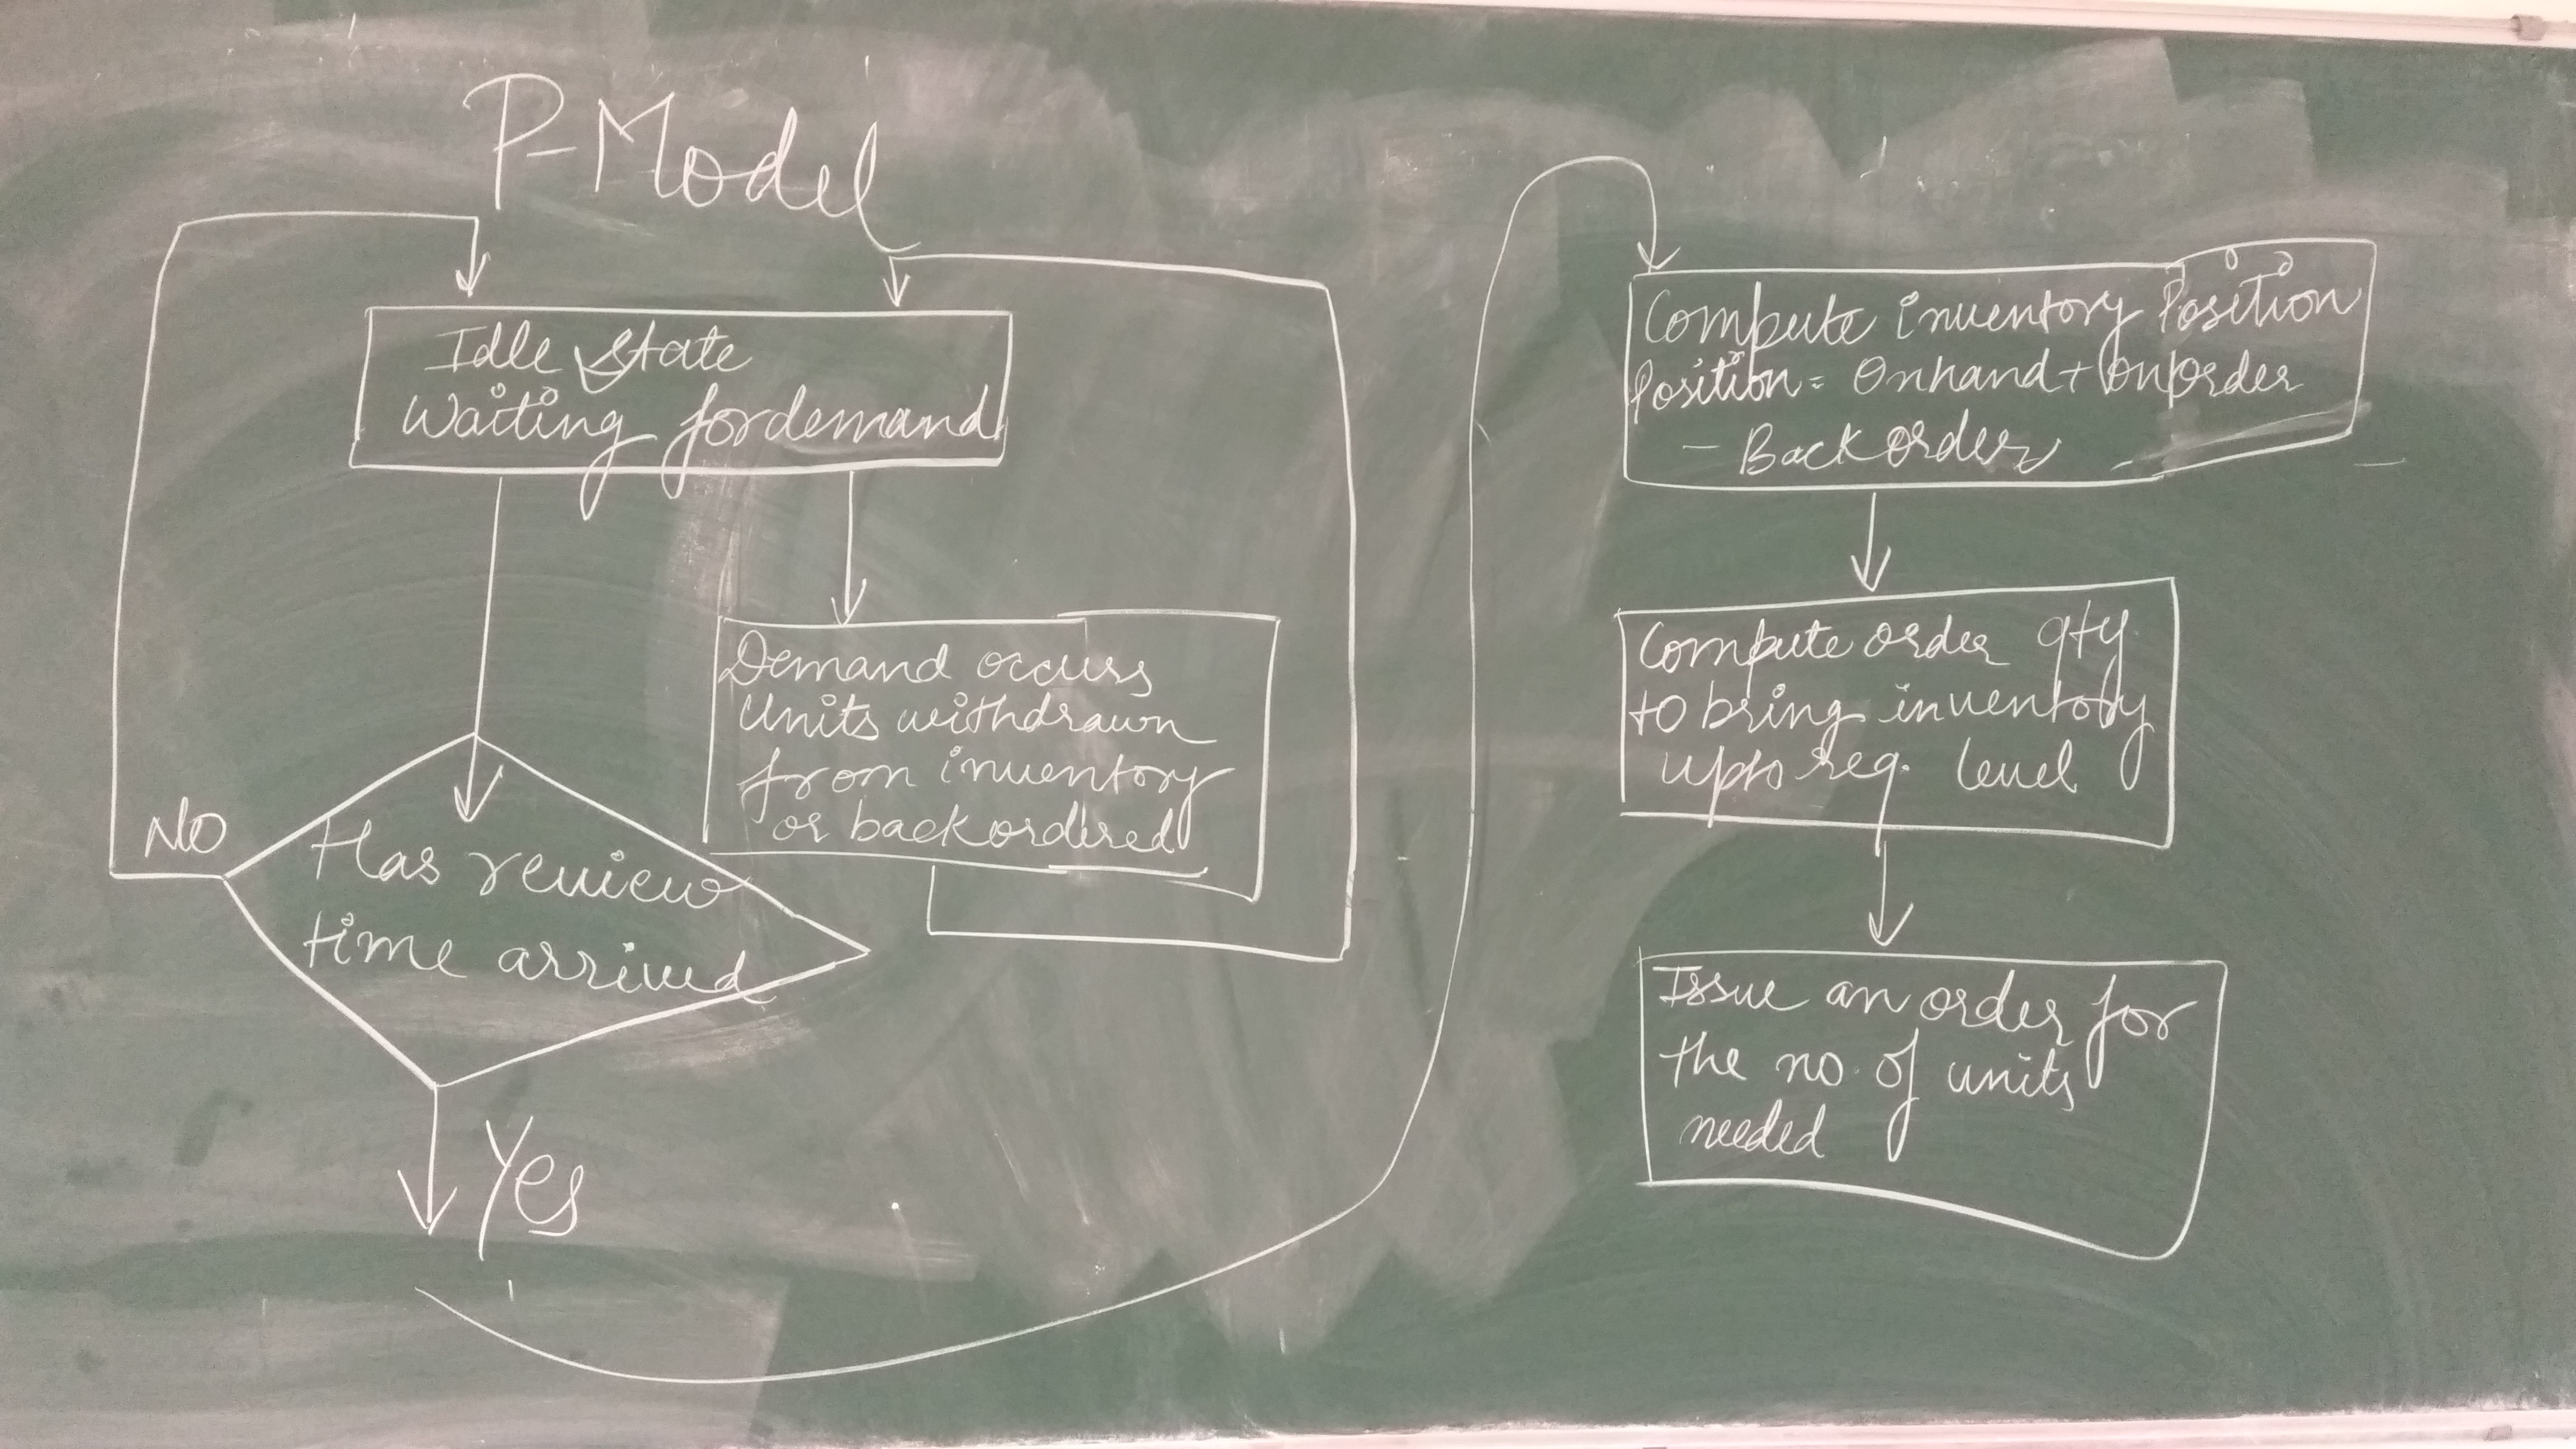 P-Model
Idle State
Waiting for demand
Demand occurs
Units withdrawn
from inventory
or backordered
NO
Has review
time arrived
Yes
Compute inventory Position
Position = Onhand + Onorder
- Backorder
Compute order qty
to bring inventory
upto req. level
Issue an order for
the no. of units
needed